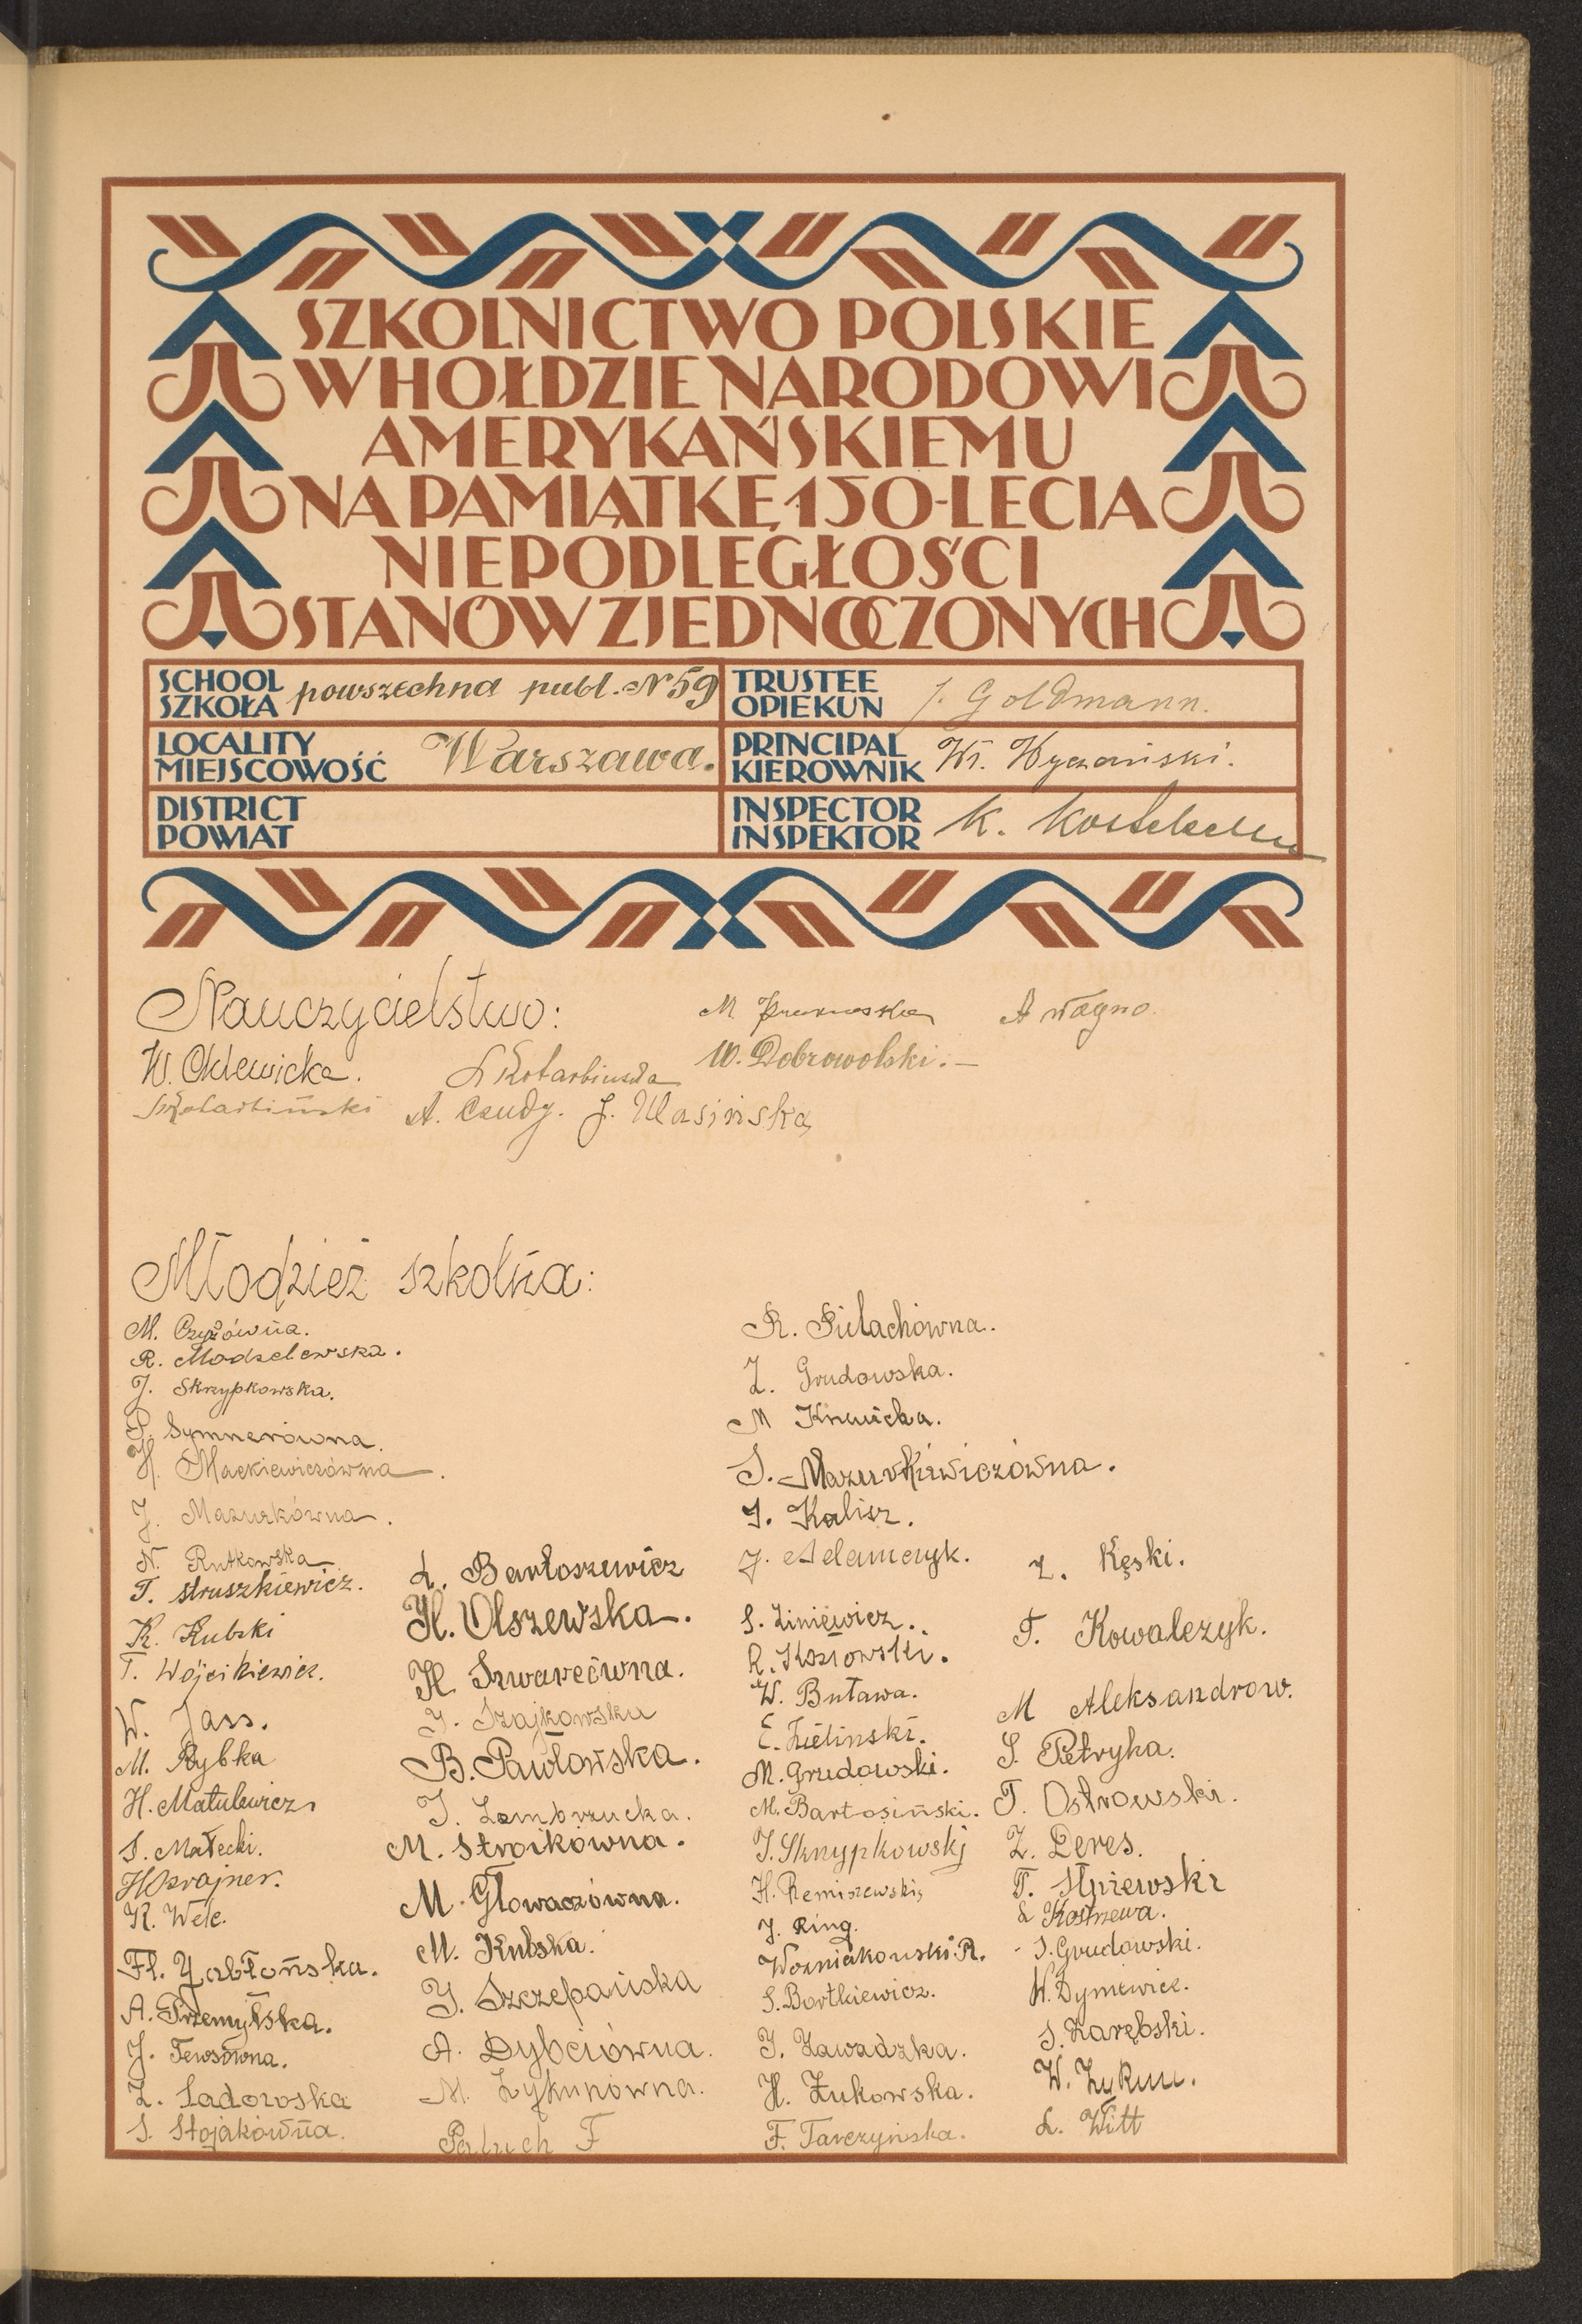 SZKOLNICTWO POLSKIE
W HOŁDZIE NARODOWI
AMERYKAŃSKIEMU
NA PAMIĄTKĘ 150-LECIA
NIEPODLEGŁOŚCI
STANÓW ZJEDNOCZONYCH
SCHOOL
SZKOŁA powszechna publ. № 59
TRUSTEE
OPIEKUN J. Goldmann.
LOCALITY
MIEJSCOWOŚĆ Warszawa.
PRINCIPAL
KIEROWNIK Wł. Wyczański.
DISTRICT
POWIAT
INSPECTOR
INSPEKTOR K.
Nauczycielstwo:
M
A Wagno.
W. Oklewicka.
Kotarbińska
W. Dobrowolski.—
Kotarbiński
A. Czudy.
J. Ulasińska
Młodzież szkolna:
M. Czyżówna.
R. Modzelewska.
J. Skrzypkowska.
P. Symnerówna.
H. Mackiewiczówna.
J. Mazurkówna.
N. Rutkowska
T. Struszkiewicz.
K. Kubski
T. Wójcikiewicz.
W. Jass.
M. Rybka
H. Matulewicz
S. Małecki.
H Szrajner.
K. Wele.
Fl. Yabłońska.
A. Przemyłska.
J. Tewsówna.
Z. Sadowska
S. Stojakówna.
L. Bartoszewicz
H. Olszewska.
H. Szwarcówna.
J. Szajkowska
B. Pawłowska.
J. Zembrzucka.
M. Stroikówna.
M. Głowaczówna.
M. Kubska.
J. Szczepańska
A. Dybciówna.
M. Zykunówna.
Paluch F
R. Pielachówna.
Z. Grudowska.
M Knawicka.
S. Mazurkiewiczówna.
J. Kalisz.
J. Adamczyk.
S. Liniewicz.
R. Kozłowski.
W. Buława.
E. Zieliński.
M. Grudowski.
M. Bartosiński.
J. Skrzypkowski
H. Remiszewski
J. Ring.
Woźniakowski R.
S. Bartkiewicz.
J. Zawadzka.
H. Żukowska.
F. Tarczyńska.
Z. Kęski.
T. Kowalczyk.
M Aleksandrow.
S. Petryka.
T. Ostrowski.
Z. Deres.
T. Stpiewski
L Kostrzewa.
J. Grudowski.
W. Dymewicz.
S. Zarębski.
W. Zykun.
L. Witt